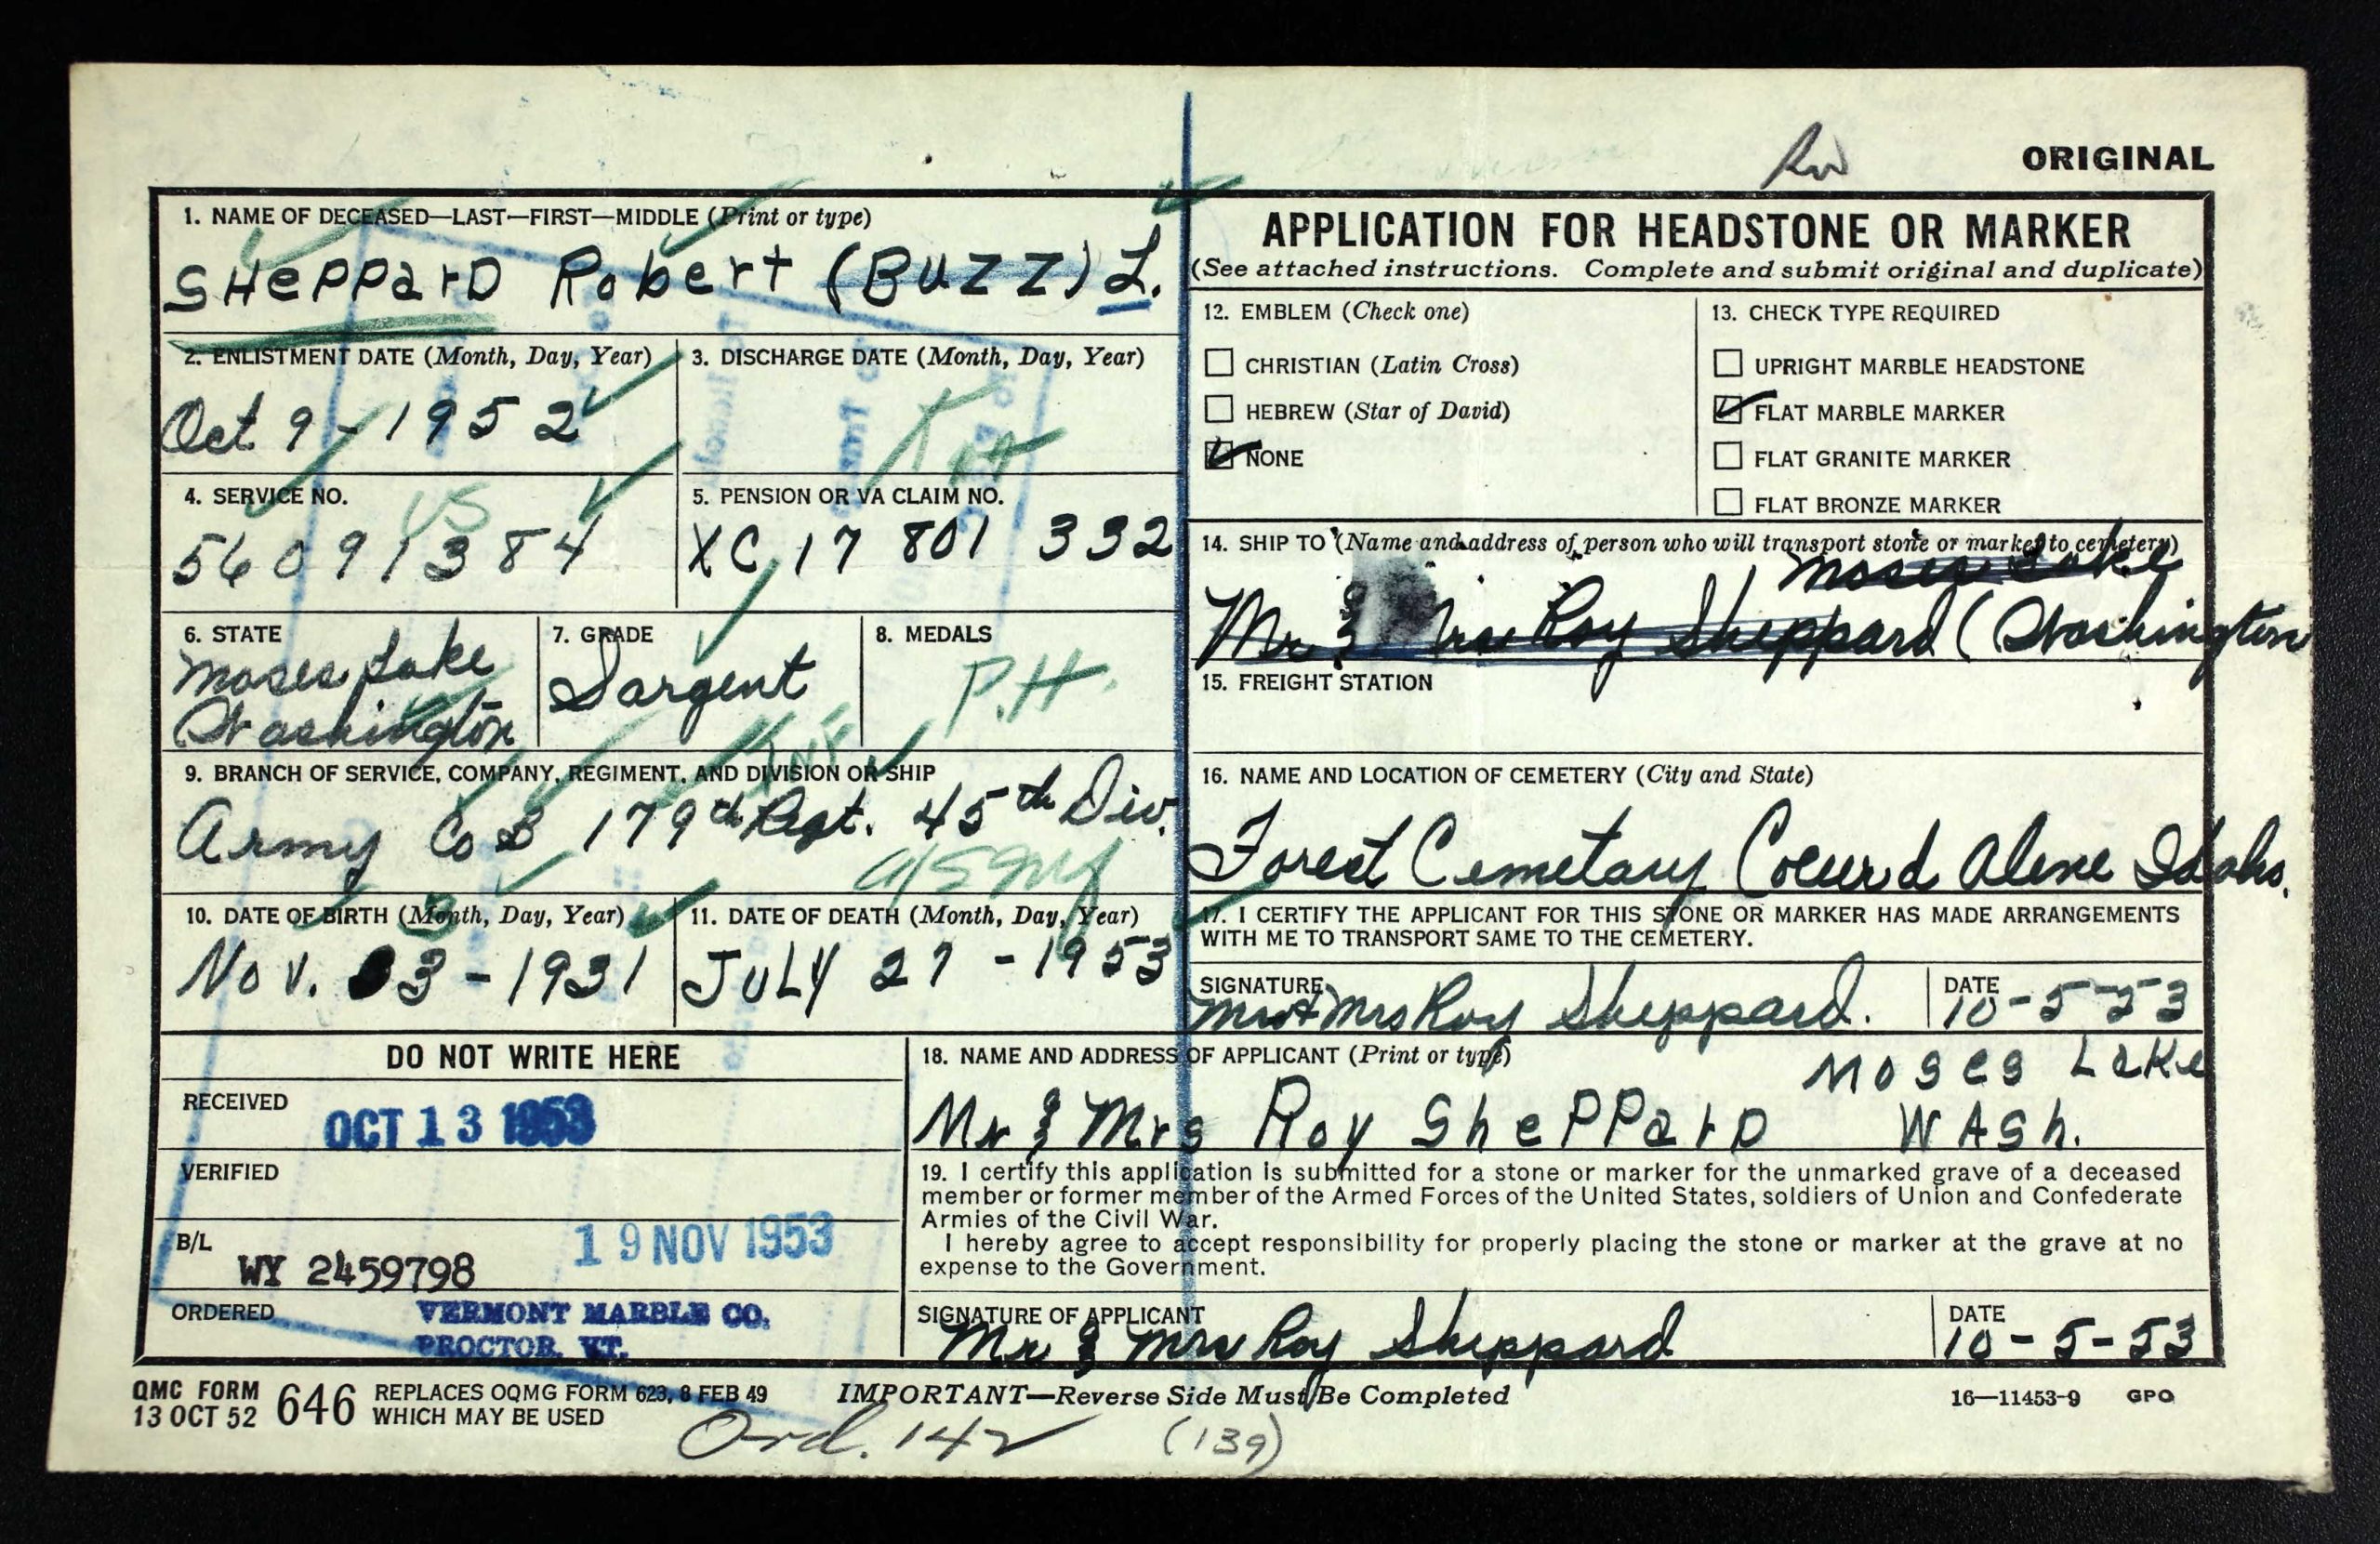 ORIGINAL
1. NAME OF DECEASED—LAST—FIRST—MIDDLE (Print or type)
SHePParD Robert (BUZZ) L.
2. ENLISTMENT DATE (Month, Day, Year)
Oct 9 - 1952
3. DISCHARGE DATE (Month, Day, Year)
4. SERVICE NO.
US
56091384
5. PENSION OR VA CLAIM NO.
XC 17 801 332
6. STATE
Moses Lake
Washington
7. GRADE
Sargent
8. MEDALS
P.H.
9. BRANCH OF SERVICE, COMPANY, REGIMENT, AND DIVISION OR SHIP
INF
Army Co B 179th Regt. 45th Div.
10. DATE OF BIRTH (Month, Day, Year)
Nov. 3 - 1931
11. DATE OF DEATH (Month, Day, Year)
JULY 27 - 1953
APPLICATION FOR HEADSTONE OR MARKER
(See attached instructions. Complete and submit original and duplicate)
12. EMBLEM (Check one)
CHRISTIAN (Latin Cross)
HEBREW (Star of David)
NONE
13. CHECK TYPE REQUIRED
UPRIGHT MARBLE HEADSTONE
FLAT MARBLE MARKER
FLAT GRANITE MARKER
FLAT BRONZE MARKER
14. SHIP TO (Name and address of person who will transport stone or marker to cemetery)
Moses Lake
Mr & Mrs Roy Sheppard (Washington
15. FREIGHT STATION
16. NAME AND LOCATION OF CEMETERY (City and State)
Forest Cemetary Coeur d Alene Idaho.
17. I CERTIFY THE APPLICANT FOR THIS STONE OR MARKER HAS MADE ARRANGEMENTS
WITH ME TO TRANSPORT SAME TO THE CEMETERY.
SIGNATURE
Mr & Mrs Roy Sheppard.
DATE
10-5-53
DO NOT WRITE HERE
RECEIVED
OCT 13 1953
VERIFIED
B/L
WY 2459798
19 NOV 1953
ORDERED
VERMONT MARBLE CO.
PROCTOR, VT.
18. NAME AND ADDRESS OF APPLICANT (Print or type)
Moses Lake
Mr & Mrs Roy ShePParD WASh.
19. I certify this application is submitted for a stone or marker for the unmarked grave of a deceased
member or former member of the Armed Forces of the United States, soldiers of Union and Confederate
Armies of the Civil War.
I hereby agree to accept responsibility for properly placing the stone or marker at the grave at no
expense to the Government.
SIGNATURE OF APPLICANT
Mr & Mrs Roy Sheppard
DATE
10-5-53
QMC FORM
13 OCT 52
646
REPLACES OQMG FORM 623, 8 FEB 49
WHICH MAY BE USED
IMPORTANT—Reverse Side Must Be Completed
16—11453-9 GPO
Ord. 142 (139)